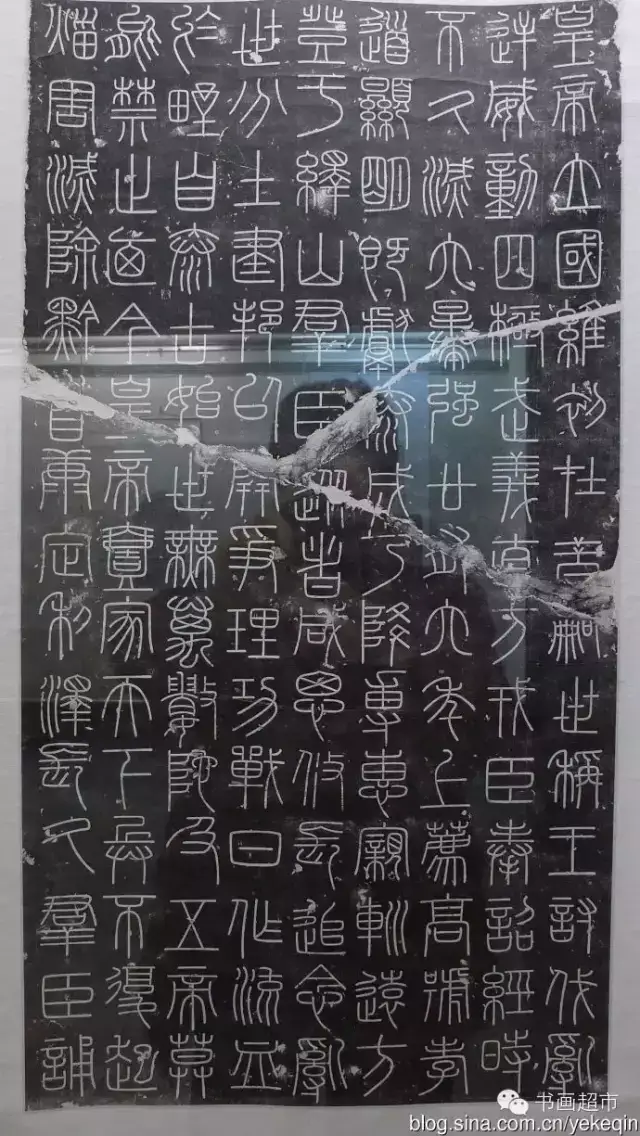 皇帝立國維初在昔嗣世稱王討伐亂
逆威動四極武義直方戎臣奉詔經時
不久滅六暴強廿有六年上薦高號孝
道顯明既獻泰成乃降專惠親巡遠方
登于繹山羣臣從者咸思攸長追念亂
世分土建邦以開爭理功戰日作流血
於野自泰古始世無萬數陀及五帝莫
能禁止廼今皇帝壹家天下兵不復起
災害滅除黔首康定利澤長久羣臣誦
书画超市
blog.sina.com.cn/yekeqin